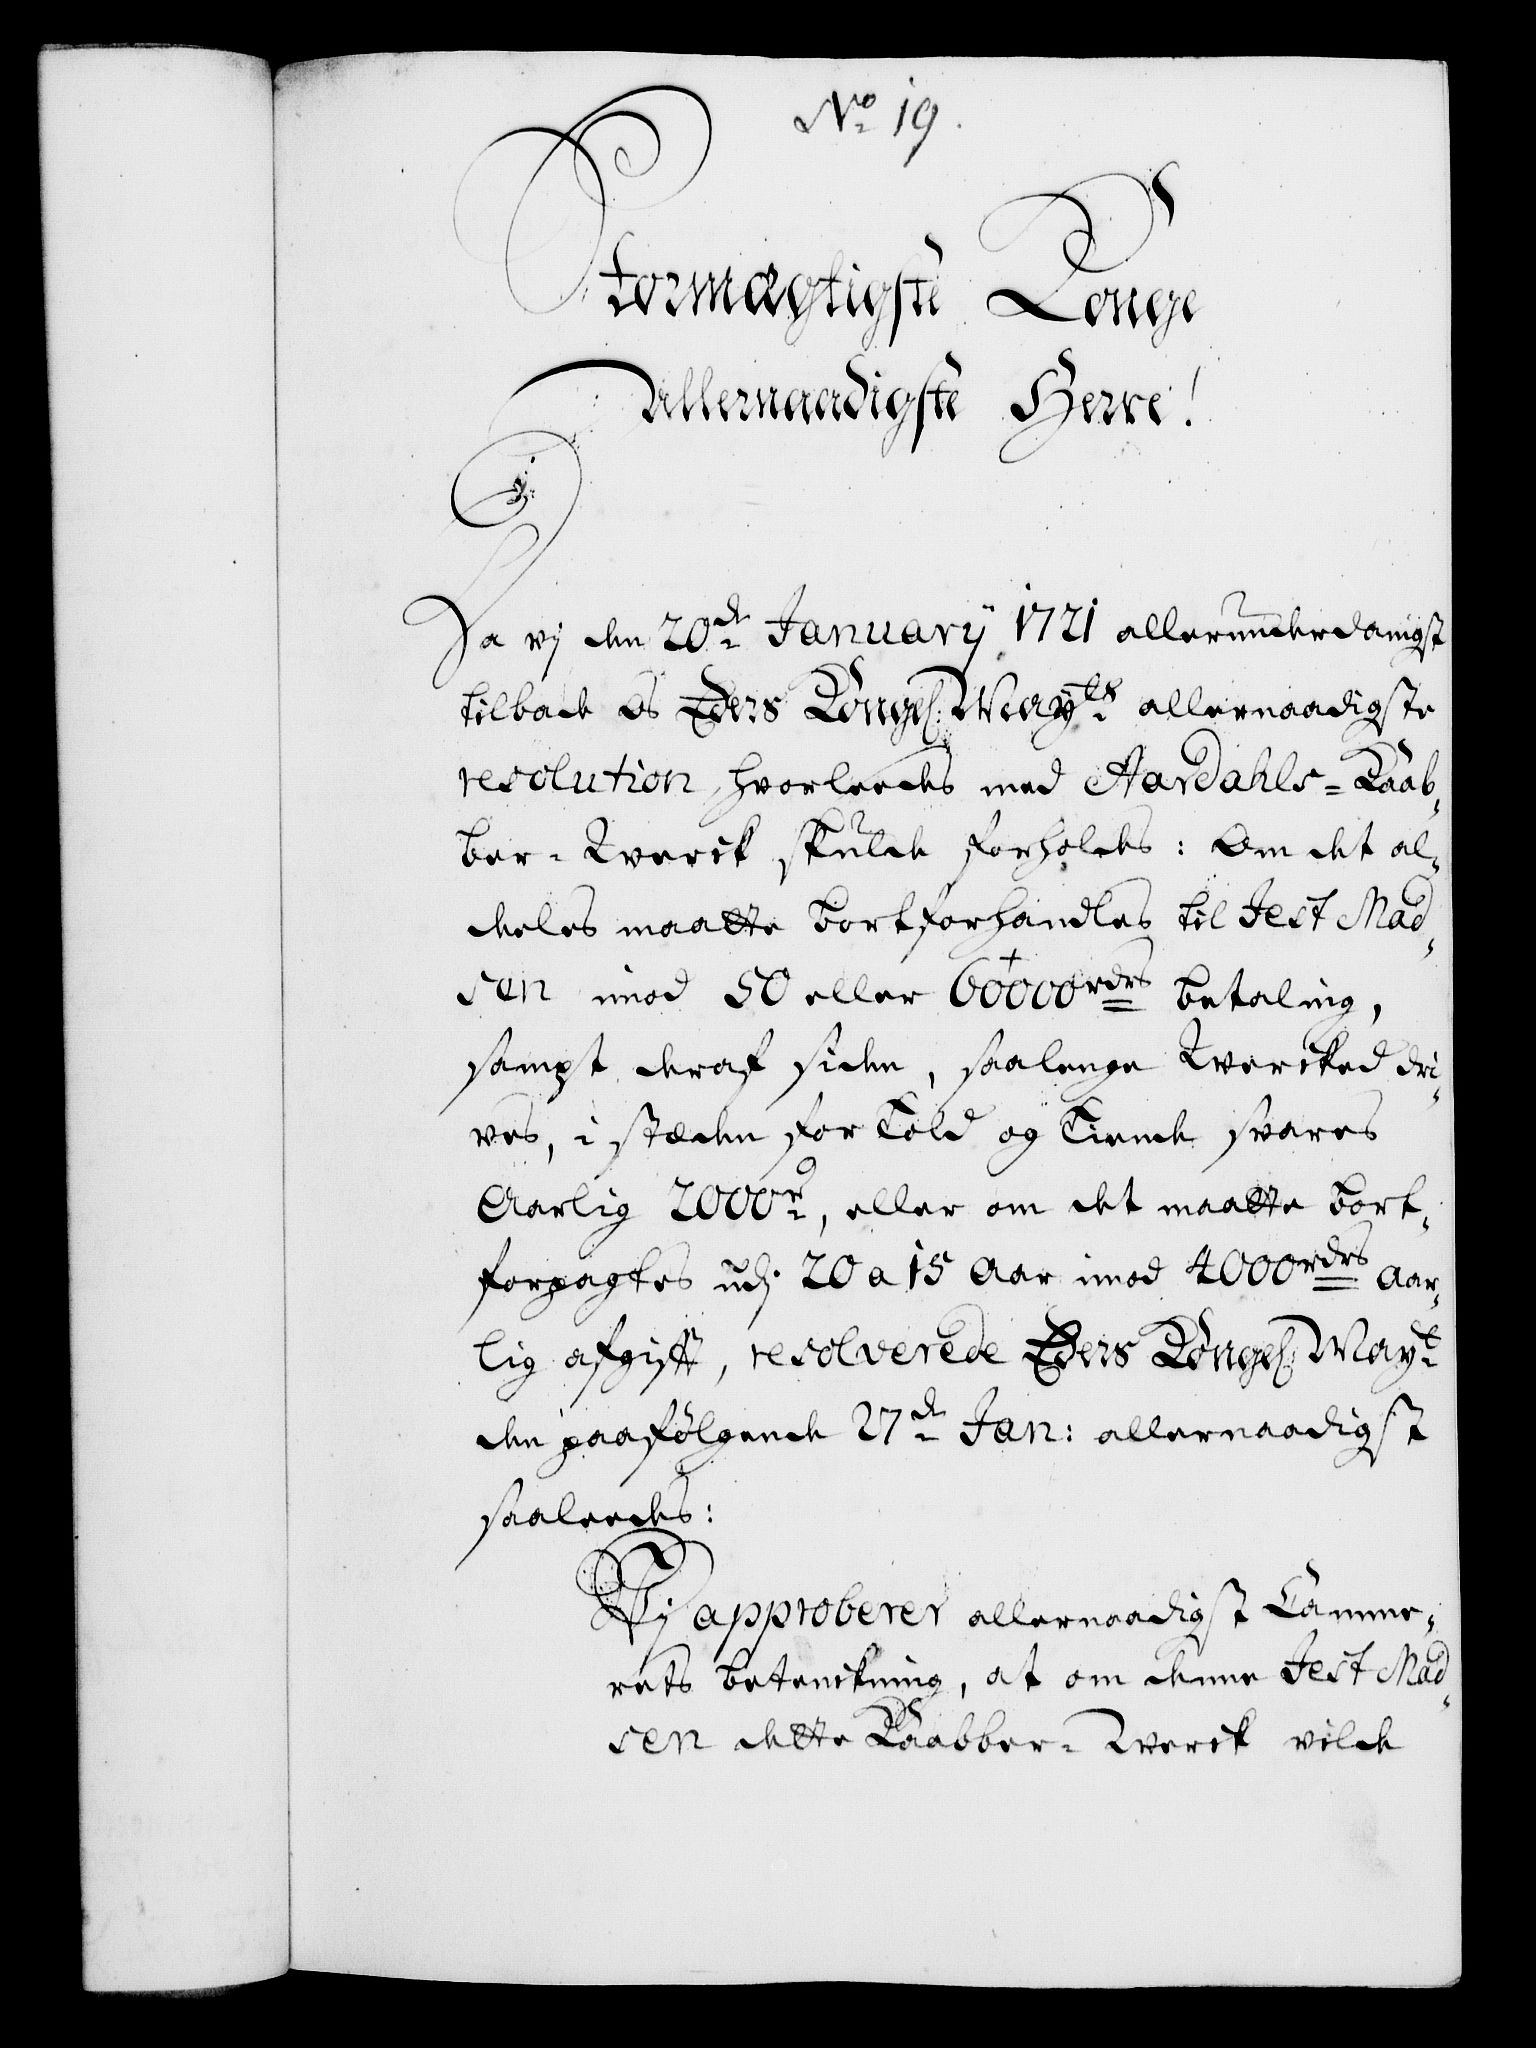 No 19.
Stormægtigste Konge
allernaadigste Herre!
Da vj den 20de January 1721 allerunderdanigst
tilbade os Eders Kongel: Mayts allernaadigste
resolution, hvorleedes med Aardahls=Kaab-
ber-Werck skulde forholdes: Om det al-
deeles maatte bortforhandles til Jest Mad-
sen imod 50 eller 60000 rdrs betaling,
sampt deraf siden, saalenge Wercked dri-
ves, i stæden for Told og Tiende svares
Aarlig 2000 rd, eller om det maatte bort-
forpagtes udj 20 a 15 Aar imod 4000 rdrs Aar-
lig afgifft, resolverede Eders Kongel: Mayt
den paafölgende 27de Jan: allernaadigst
saaleedes:
Vj approberer allernaadigst Camme-
rets betenckning, at om denne Jest Mad-
sen dette Kaabber-Werck vilde